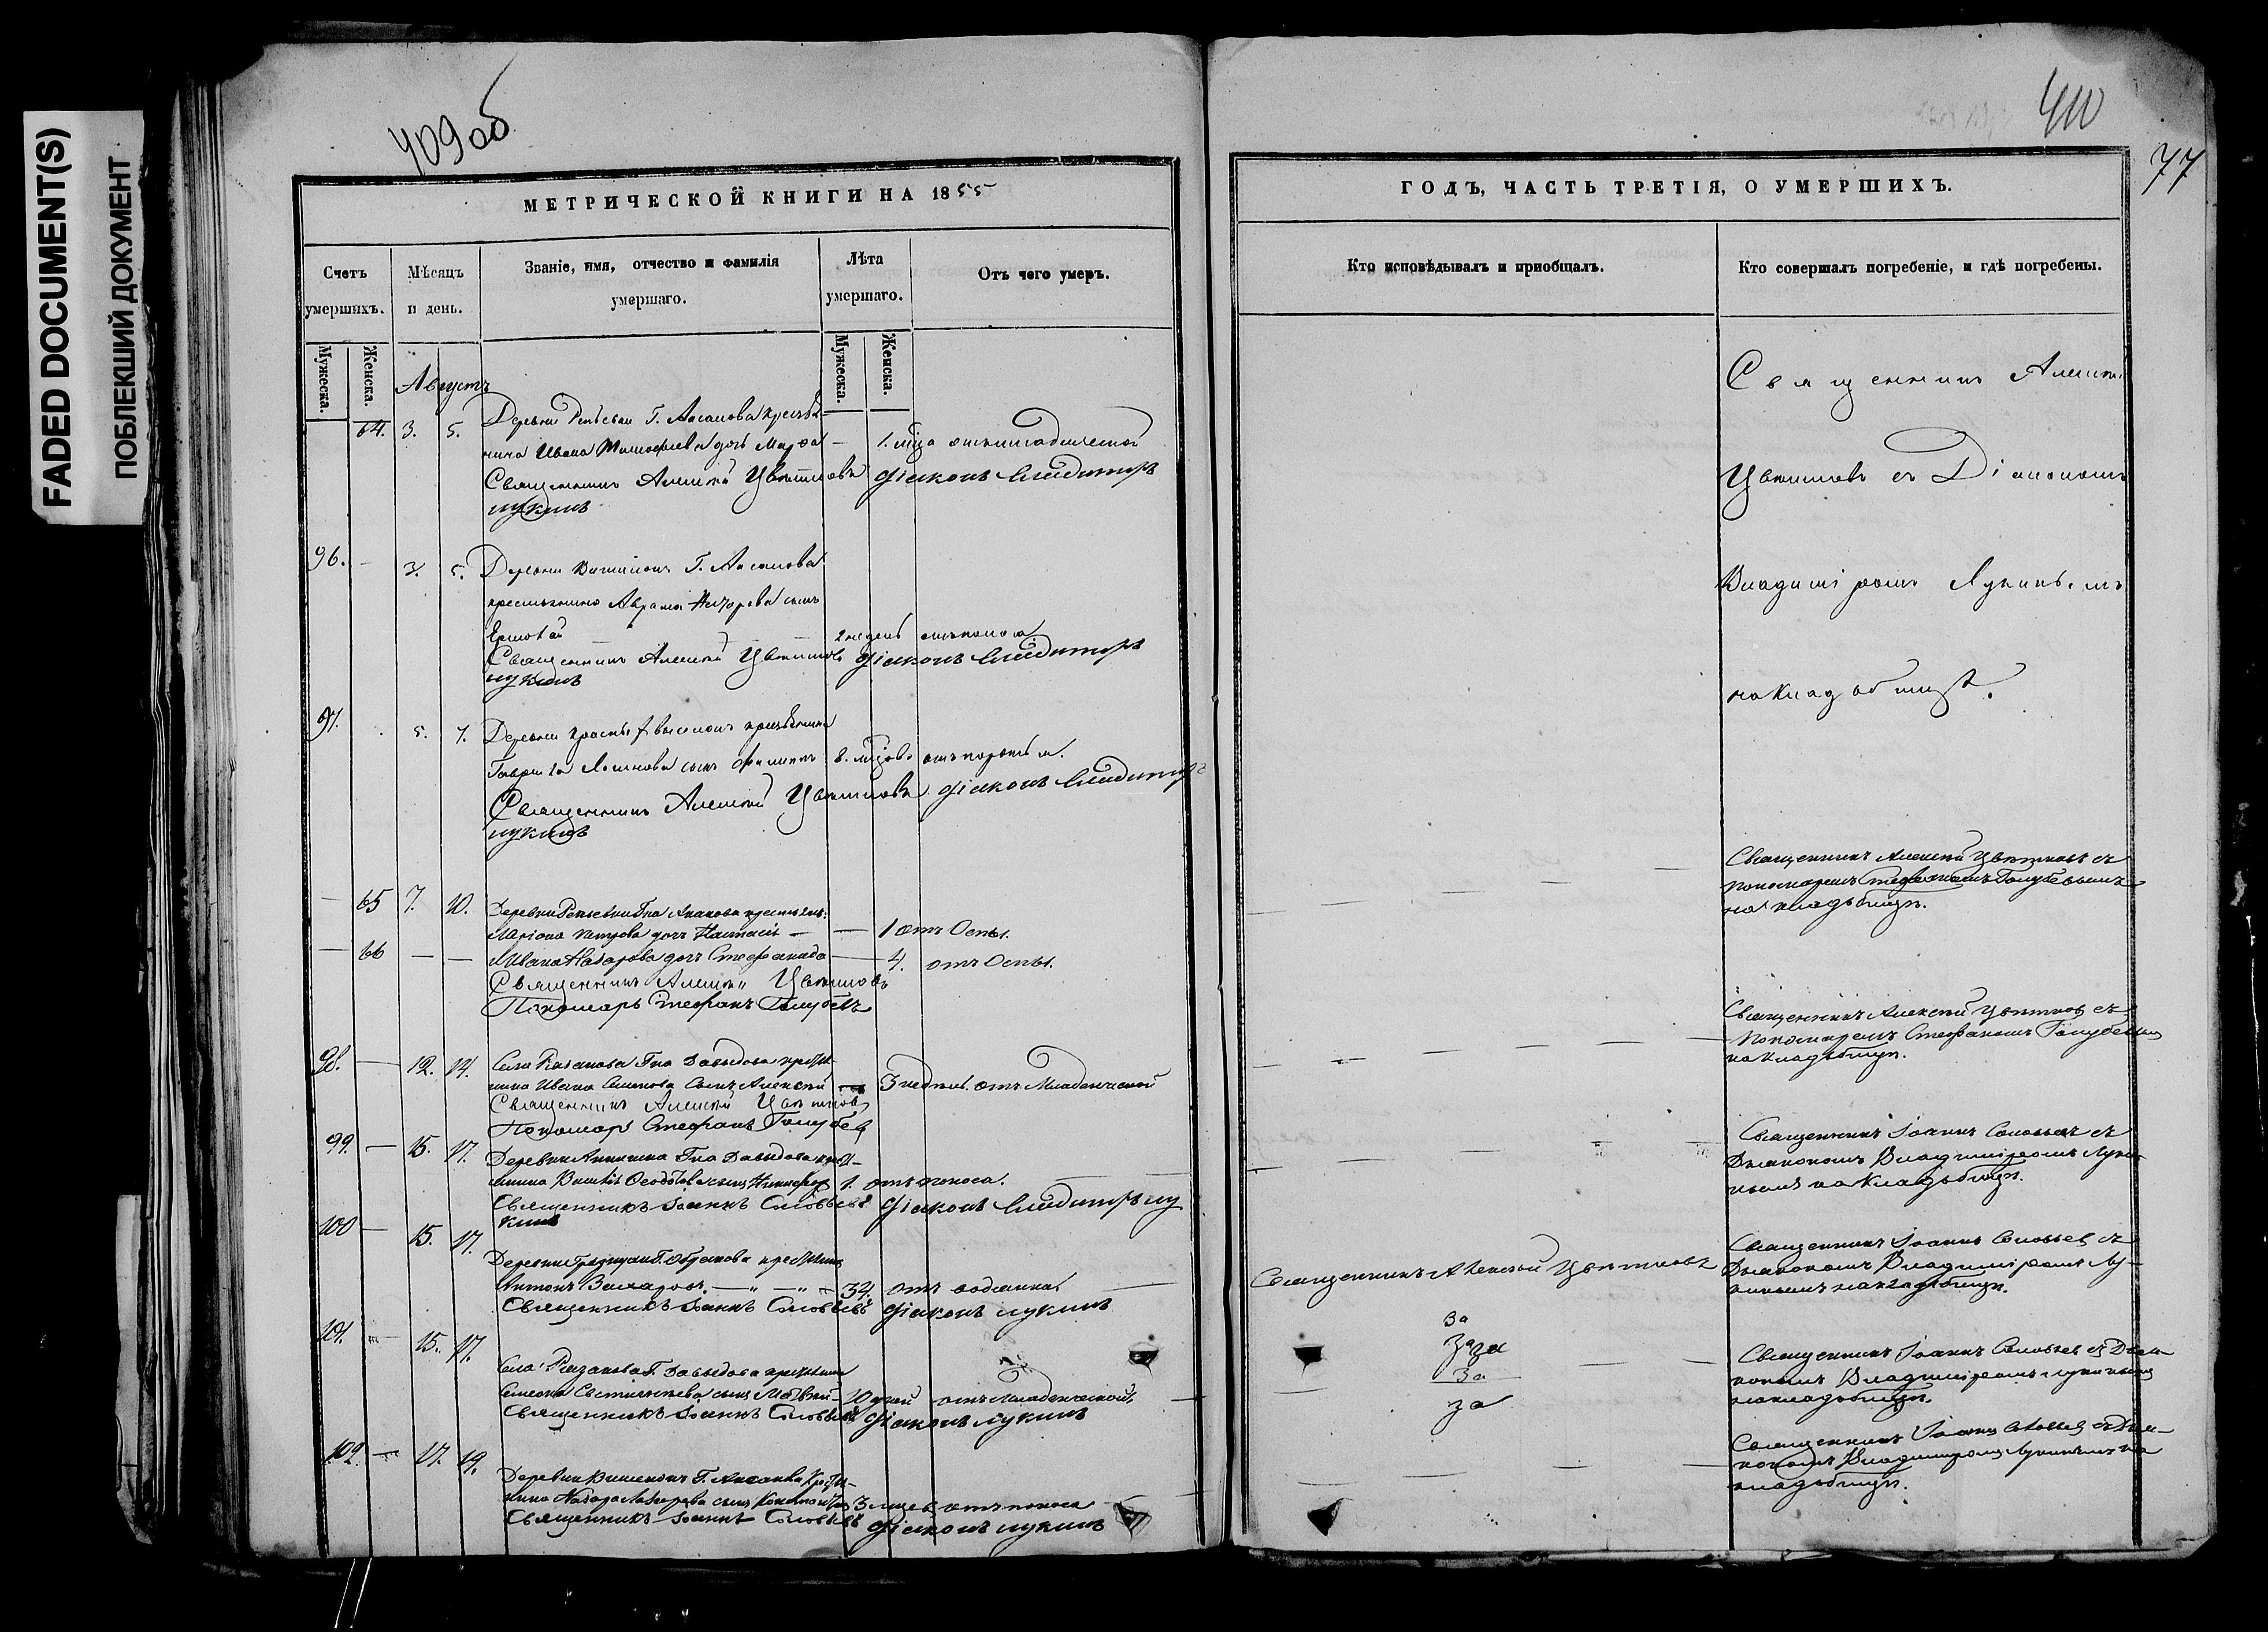 FADED DOCUMENT(S)
ПОБЛЕКШИЙ ДОКУМЕНТ
409об
МЕТРИЧЕСКОЙ КНИГИ НА 1855
Счетъ умершихъ.
Мѣсяцъ и день.
Званіе, имя, отчество и фамилія умершаго.
Лѣта умершаго.
Отъ чего умеръ.
Мужеска.
Женска.
Мужеска.
Женска.
Августъ
64. 3. 5. Деревни Репьевки Г. Аксакова крестья-
нина Ивана дочь Марфа — 1. мца отъ младенческой
Священникъ Алексѣй Цвѣтковъ Діаконъ Владиміръ
Лукинъ
96. — 3. 5. Деревни Г. Аксакова
крестьянина Аврама сынъ
Ермолай 2 недель отъ поноса
Священникъ Алексѣй Цвѣтковъ Діаконъ Владиміръ
Лукинъ
97. 5. 7. Деревни крестьянина
Гаврила сынъ Филиппъ 8. мцовъ отъ поноса.
Священникъ Алексѣй Цвѣтковъ Діаконъ Владиміръ
Лукинъ
— 65 7. 10. Деревни Репьевки Гна Аксакова крестьян:
Ларіона Петрова дочь Настасія — — 1 отъ Оспы.
— 66 — — Ивана Назарова дочь Стефанида — 4. отъ Оспы.
Священникъ Алексѣй Цвѣтковъ
Пономарь Стефанъ Голубевъ
98. — 12. 14. Села Гна Давыдова
нина Ивана Семенова сынъ Алексѣй 3 недель. отъ Младенческой
Священникъ Алексѣй Цвѣтковъ
Пономарь Стефанъ Голубевъ
99. — 15. 17. Деревни Гна Давыдова
сынъ Никифоръ 1. отъ поноса.
Священникъ Іоаннъ Соловьевъ Діаконъ Владиміръ Лу
кинъ
100 — 15. 17.
Деревни Г.
Антонъ Захаровъ. — 34. отъ водянки
Священникъ Іоаннъ Соловьевъ Діаконъ Лукинъ
101. — 15. 17.
Села Г. Давыдова
Семена сынъ Матвей 10 дней отъ младенческой.
Священникъ Іоаннъ Соловьевъ Діаконъ Лукинъ
102. — 17. 19.
Деревни Г. Аксакова
нина Назара сынъ 3 отъ поноса
Священникъ Іоаннъ Соловьевъ Діаконъ Лукинъ
410
77
ГОДЪ, ЧАСТЬ ТРЕТІЯ, О УМЕРШИХЪ.
Кто исповѣдывалъ и пріобщалъ.
Кто совершалъ погребеніе, и гдѣ погребены.
Священникъ Алексѣй
Цвѣтковъ съ Діакономъ
Владиміромъ Лукинымъ
на кладбищѣ.
Священникъ Алексѣй Цвѣтковъ съ
пономаремъ Стефаномъ Голубевымъ
на кладбищѣ.
Священникъ Алексѣй Цвѣтковъ съ
Пономаремъ Стефаномъ Голубевымъ
на кладбищѣ.
Священникъ Іоаннъ Соловьевъ съ
Дьякономъ Владиміромъ Луки-
нымъ на кладбищѣ.
Священникъ Алексѣй Цвѣтковъ
Священникъ Іоаннъ Соловьевъ съ
Дьякономъ Владиміромъ Лу-
кинымъ на кладбищѣ.
За
За
за
Священникъ Іоаннъ Соловьевъ съ Дья-
кономъ Владиміромъ Лукинымъ
на кладбищѣ.
Священникъ Іоаннъ Соловьевъ съ Дья-
кономъ Владиміромъ Лукинымъ на
кладбищѣ.